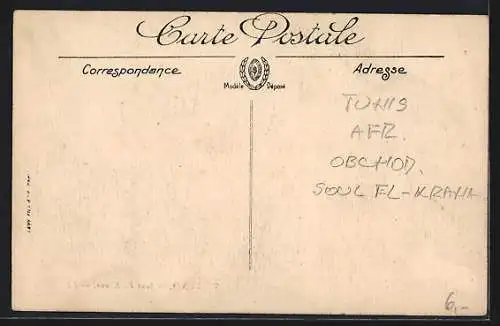 Carte Postale
Correspondance
Adresse
Modèle Déposé
TUNIS
AFR.
OBCHOD.
SOUL EL-KRAHA
6,-